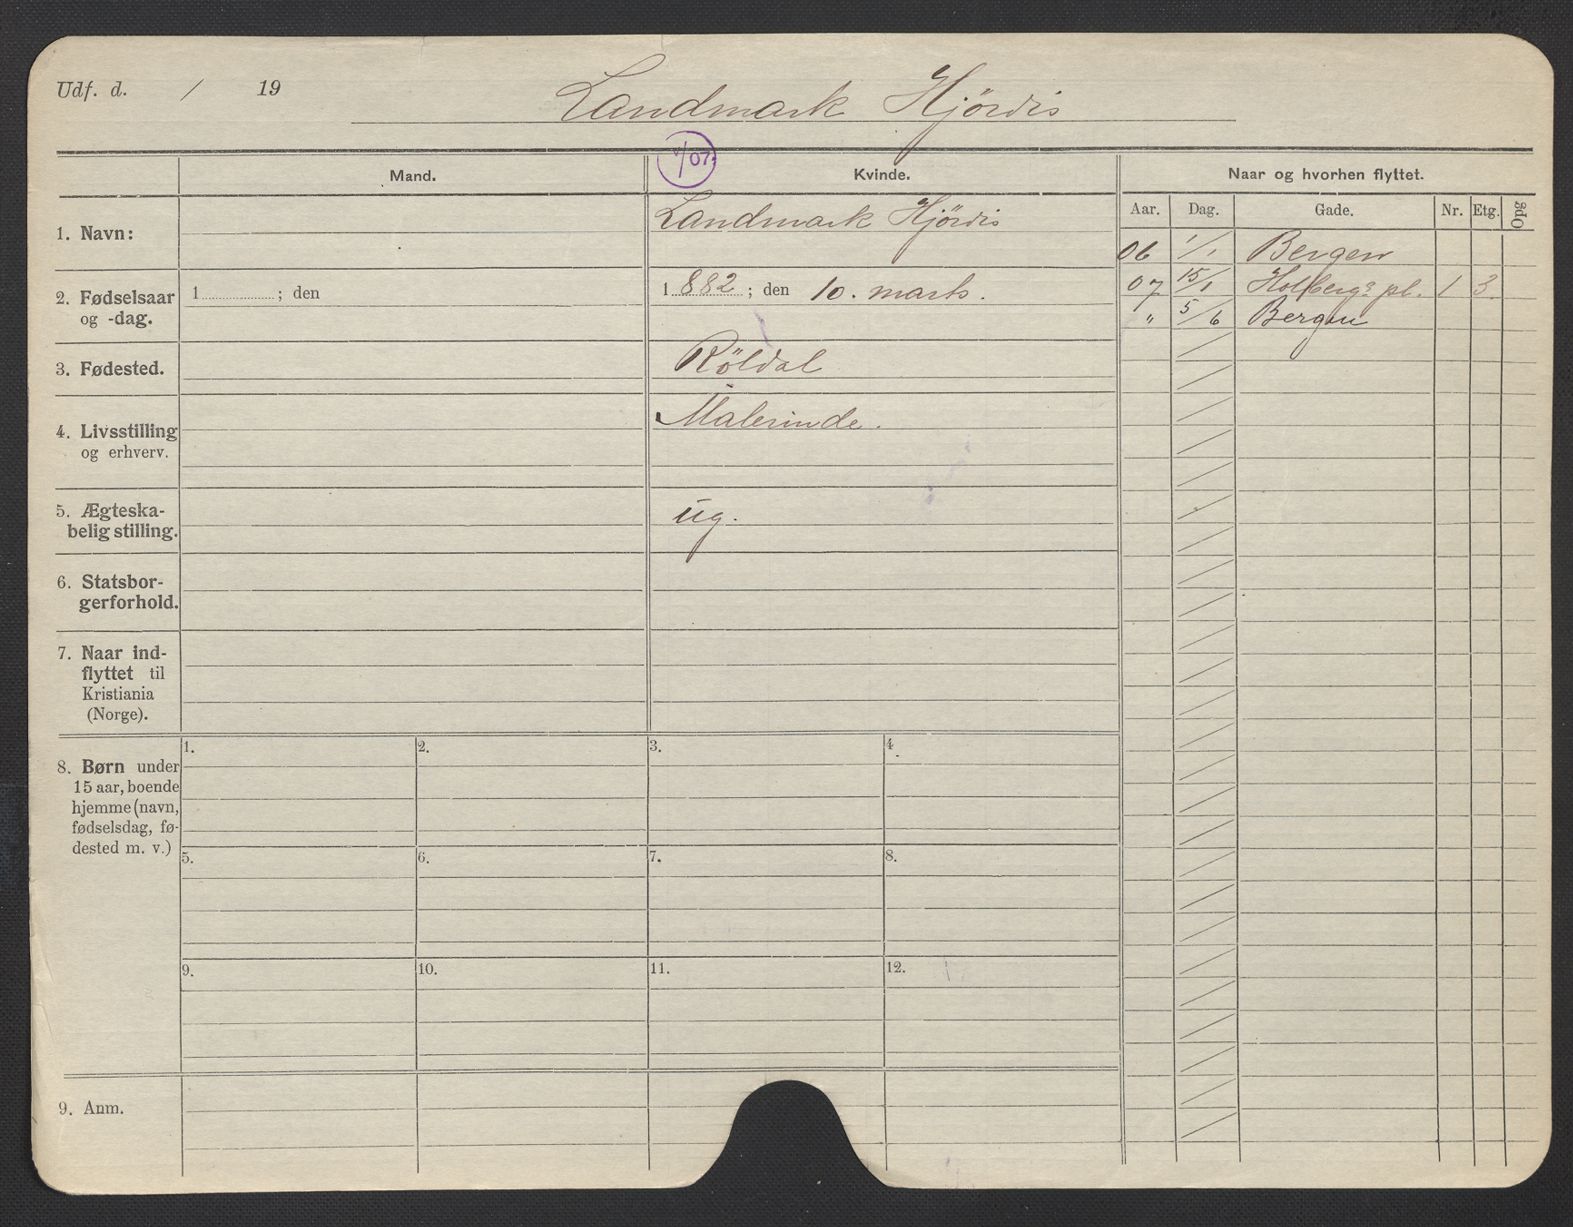 Udf. d. / 19 Landmark Hjördis
/07.
Mand. Kvinde. Naar og hvorhen flyttet.
Aar. Dag. Gade. Nr. Etg. Opg
1. Navn: Landmark Hjördis
06 1/1 Bergen
2. Fødselsaar og -dag. 1 ; den 1 882 ; den 10. marts.
07 15/1 Holbergs pl. 1 3.
" 5/6 Bergen
3. Fødested. Röldal
4. Livsstilling og erhverv. Malerinde.
5. Ægteska-
belig stilling. ug.
6. Statsbor-
gerforhold.
7. Naar ind-
flyttet til
Kristiania
(Norge).
8. Børn under
15 aar, boende
hjemme (navn,
fødselsdag, fø-
dested m. v.)
1. 2. 3. 4.
5. 6. 7. 8.
9. 10. 11. 12.
9. Anm.